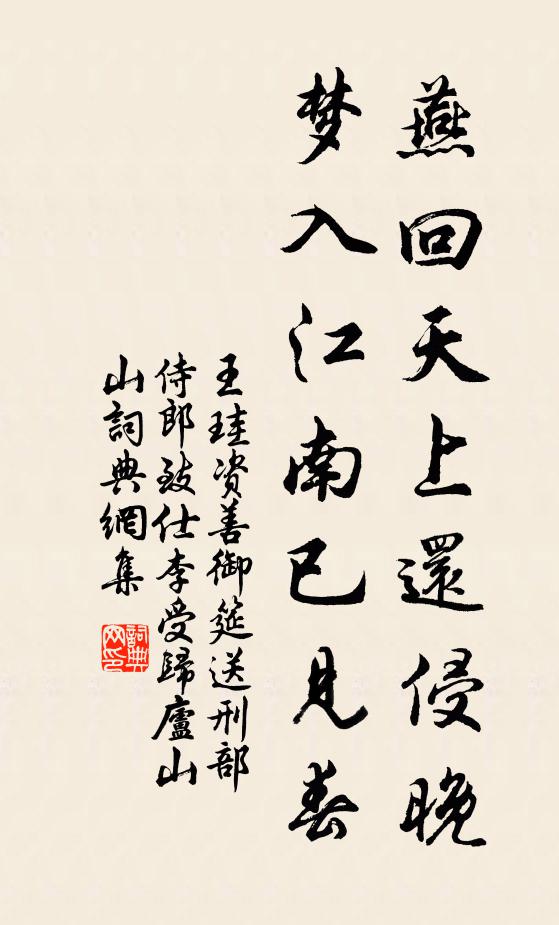 燕回天上還侵晚
梦入江南已見春
王珪资善御筵送刑部
侍郎致仕李受歸廬山
山詞典網集
詞典网印